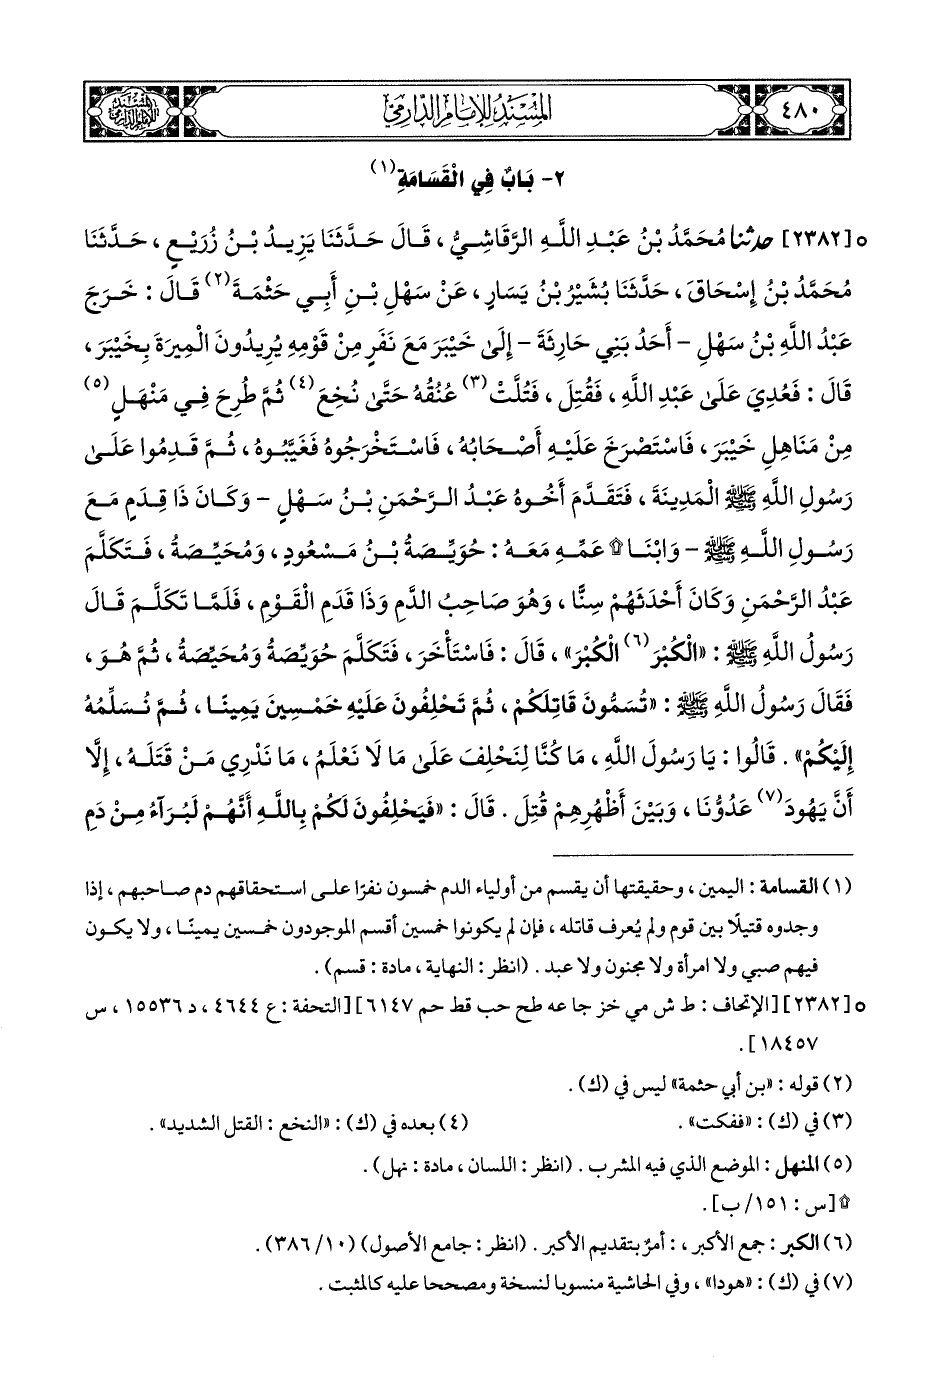 ٤٨٠
المسند للإمام الدارمي
٢- بَابٌ فِي الْقَسَامَةِ(١)
٥ [٢٣٨٢] حدثنا مُحَمَّدُ بْنُ عَبْدِ اللَّهِ الرَّقَاشِيُّ ، قَالَ حَدَّثَنَا يَزِيدُ بْنُ زُرَيْعٍ ، حَدَّثَنَا
مُحَمَّدُ بْنُ إِسْحَاقَ ، حَدَّثَنَا بُشَيْرُ بْنُ يَسَارٍ ، عَنْ سَهْلِ بْنِ أَبِي حَثْمَةَ(٢) قَالَ : خَرَجَ
عَبْدُ اللَّهِ بْنُ سَهْلٍ - أَحَدُ بَنِي حَارِثَةَ - إِلَى خَيْبَرَ مَعَ نَفَرٍ مِنْ قَوْمِهِ يُرِيدُونَ الْمِيرَةَ بِخَيْبَرَ ،
قَالَ : فَعُدِيَ عَلَى عَبْدِ اللَّهِ ، فَقُتِلَ ، فَتُلَّتْ(٣) عُنُقُهُ حَتَّى نُخِعَ(٤) ثُمَّ طُرِحَ فِي مَنْهَلٍ(٥)
مِنْ مَنَاهِلِ خَيْبَرَ ، فَاسْتَصْرَخَ عَلَيْهِ أَصْحَابُهُ ، فَاسْتَخْرَجُوهُ فَغَيَّبُوهُ ، ثُمَّ قَدِمُوا عَلَى
رَسُولِ اللَّهِ ﷺ الْمَدِينَةَ ، فَتَقَدَّمَ أَخُوهُ عَبْدُ الرَّحْمَنِ بْنُ سَهْلٍ - وَكَانَ ذَا قِدَمٍ مَعَ
رَسُولِ اللَّهِ ﷺ - وَابْنَا ۩ عَمِّهِ مَعَهُ : حُوَيِّصَةُ بْنُ مَسْعُودٍ ، وَمُحَيِّصَةُ ، فَتَكَلَّمَ
عَبْدُ الرَّحْمَنِ وَكَانَ أَحْدَثَهُمْ سِنًّا ، وَهُوَ صَاحِبُ الدَّمِ وَذَا قَدَمِ الْقَوْمِ ، فَلَمَّا تَكَلَّمَ قَالَ
رَسُولُ اللَّهِ ﷺ : «الْكُبْرَ(٦) الْكُبْرَ» ، قَالَ : فَاسْتَأْخَرَ ، فَتَكَلَّمَ حُوَيِّصَةُ وَمُحَيِّصَةُ ، ثُمَّ هُوَ ،
فَقَالَ رَسُولُ اللَّهِ ﷺ : «تُسَمُّونَ قَاتِلَكُمْ ، ثُمَّ تَحْلِفُونَ عَلَيْهِ خَمْسِينَ يَمِينًا ، ثُمَّ نُسَلِّمُهُ
إِلَيْكُمْ» . قَالُوا : يَا رَسُولَ اللَّهِ ، مَا كُنَّا لِنَحْلِفَ عَلَى مَا لَا نَعْلَمُ ، مَا نَدْرِي مَنْ قَتَلَهُ ، إِلَّا
أَنَّ يَهُودَ(٧) عَدُوُّنَا ، وَبَيْنَ أَظْهُرِهِمْ قُتِلَ . قَالَ : «فَيَحْلِفُونَ لَكُمْ بِاللَّهِ أَنَّهُمْ لَبُرَآءُ مِنْ دَمِ
(١) القسامة : اليمين ، وحقيقتها أن يقسم من أولياء الدم خمسون نفرًا على استحقاقهم دم صاحبهم ، إذا
وجدوه قتيلًا بين قوم ولم يُعرف قاتله ، فإن لم يكونوا خمسين أقسم الموجودون خمسين يمينًا ، ولا يكون
فيهم صبي ولا امرأة ولا مجنون ولا عبد . (انظر : النهاية ، مادة : قسم) .
٥ [٢٣٨٢] [الإتحاف : ط ش مي خز جا عه طح حب قط حم ٦١٤٧] [التحفة : ع ٤٦٤٤ ، د ١٥٥٣٦ ، س
١٨٤٥٧] .
(٢) قوله : «بن أبي حثمة» ليس في (ك) .
(٣) في (ك) : «ففكت» . (٤) بعده في (ك) : «النخع : القتل الشديد» .
(٥) المنهل : الموضع الذي فيه المشرب . (انظر : اللسان ، مادة : نهل) .
۩ [س : ١٥١/ ب] .
(٦) الكبر : جمع الأكبر ، : أمرٌ بتقديم الأكبر . (انظر : جامع الأصول) (١٠/ ٣٨٦) .
(٧) في (ك) : «هودا» ، وفي الحاشية منسوبا لنسخة ومصححا عليه كالمثبت .